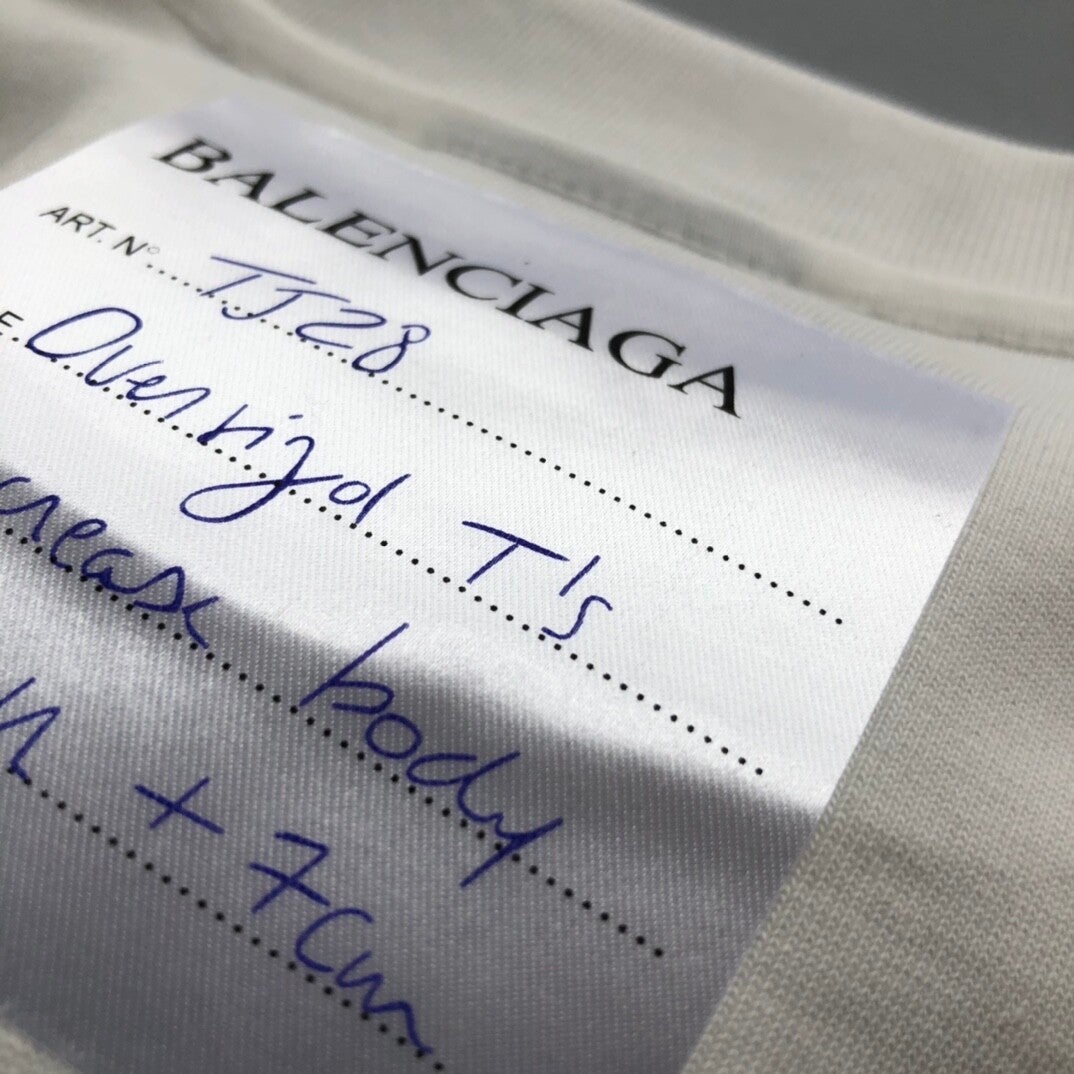 BALENCIAGA
ART. N° TJ28
E. Oversized T's
crease body
+ 7cm